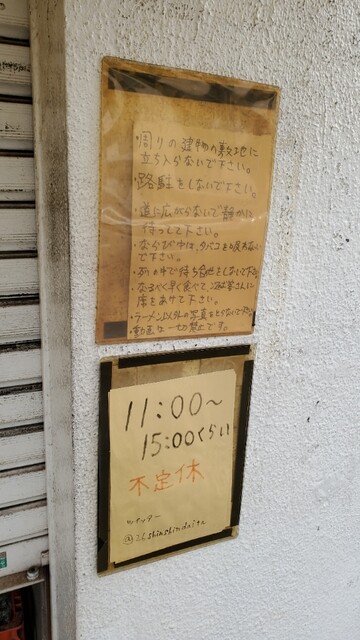 ・周りの建物の敷地に
立ち入らないで下さい。
・路駐をしないで下さい。
・道に広がらないで静かに
待って下さい。
・ならび中は、タバコを
で下さい。
・列の中で待ち合せをしないで下さい
・なるべく早く食べて、次のお客さんに
席をあけて下さい。
・ラーメン以外の写真をとらないで下さい
・動画は一切禁止です。
11:00〜
15:00くらい
不定休
ツイッター